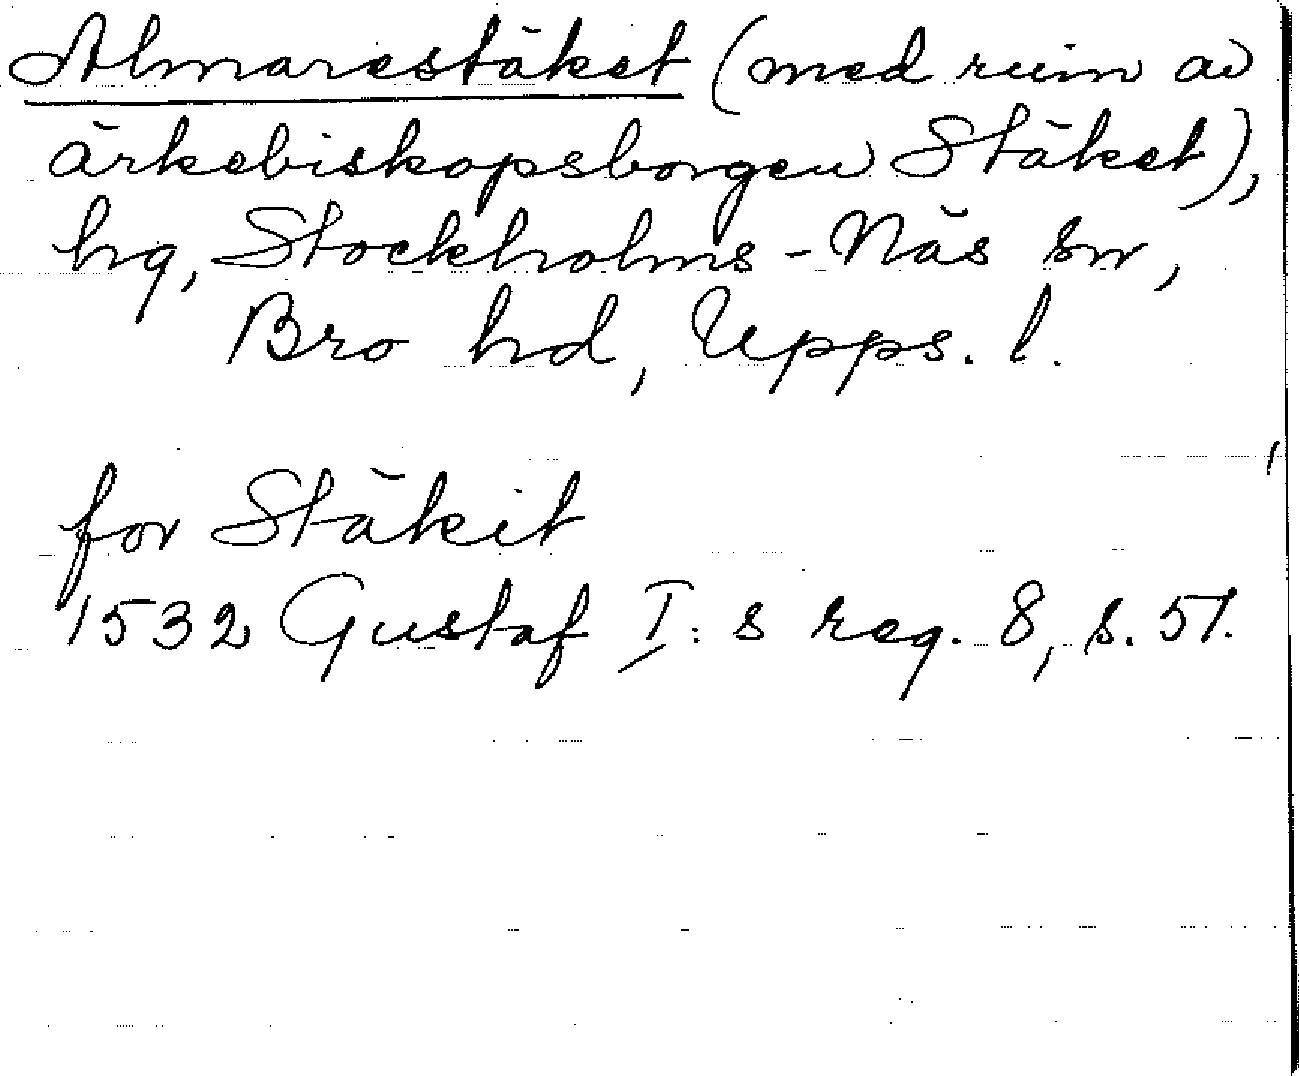 Almarestäket (med ruin av
ärkebiskopsborgen Stäket),
hg, Stockholms-Näs sn,
Bro hd, Upps. l.
for Stäkit
1532 Gustaf I:s reg. 8, s. 51.